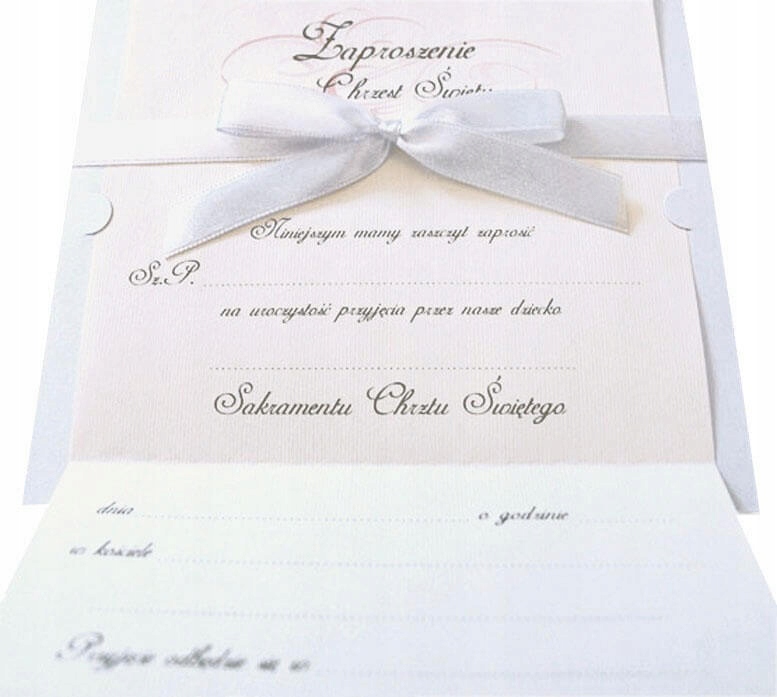 Zaproszenie
Chrzest Święty
Niniejszym mamy zaszczyt zaprosić
Sz.P.
na uroczystość przyjęcia przez nasze dziecko
Sakramentu Chrztu Świętego
dnia o godzinie
w kościele
Przyjęcie odbędzie się w